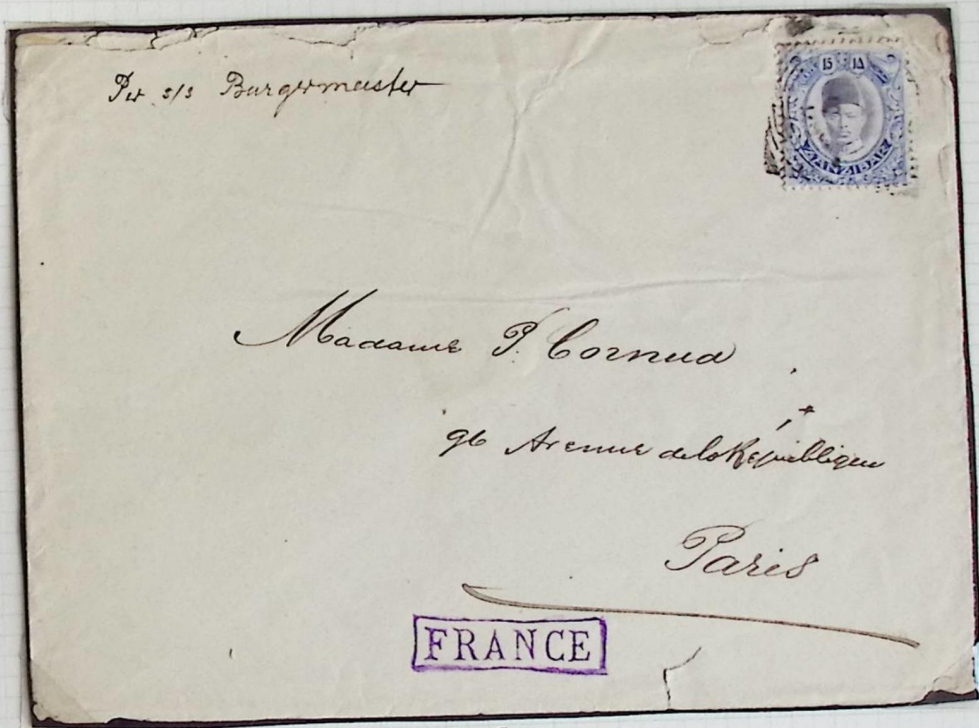 Per s/s Burgermeister
15 15
ZANZIBAR
Madame P. Cornud
96 Avenue de la République
Paris
FRANCE